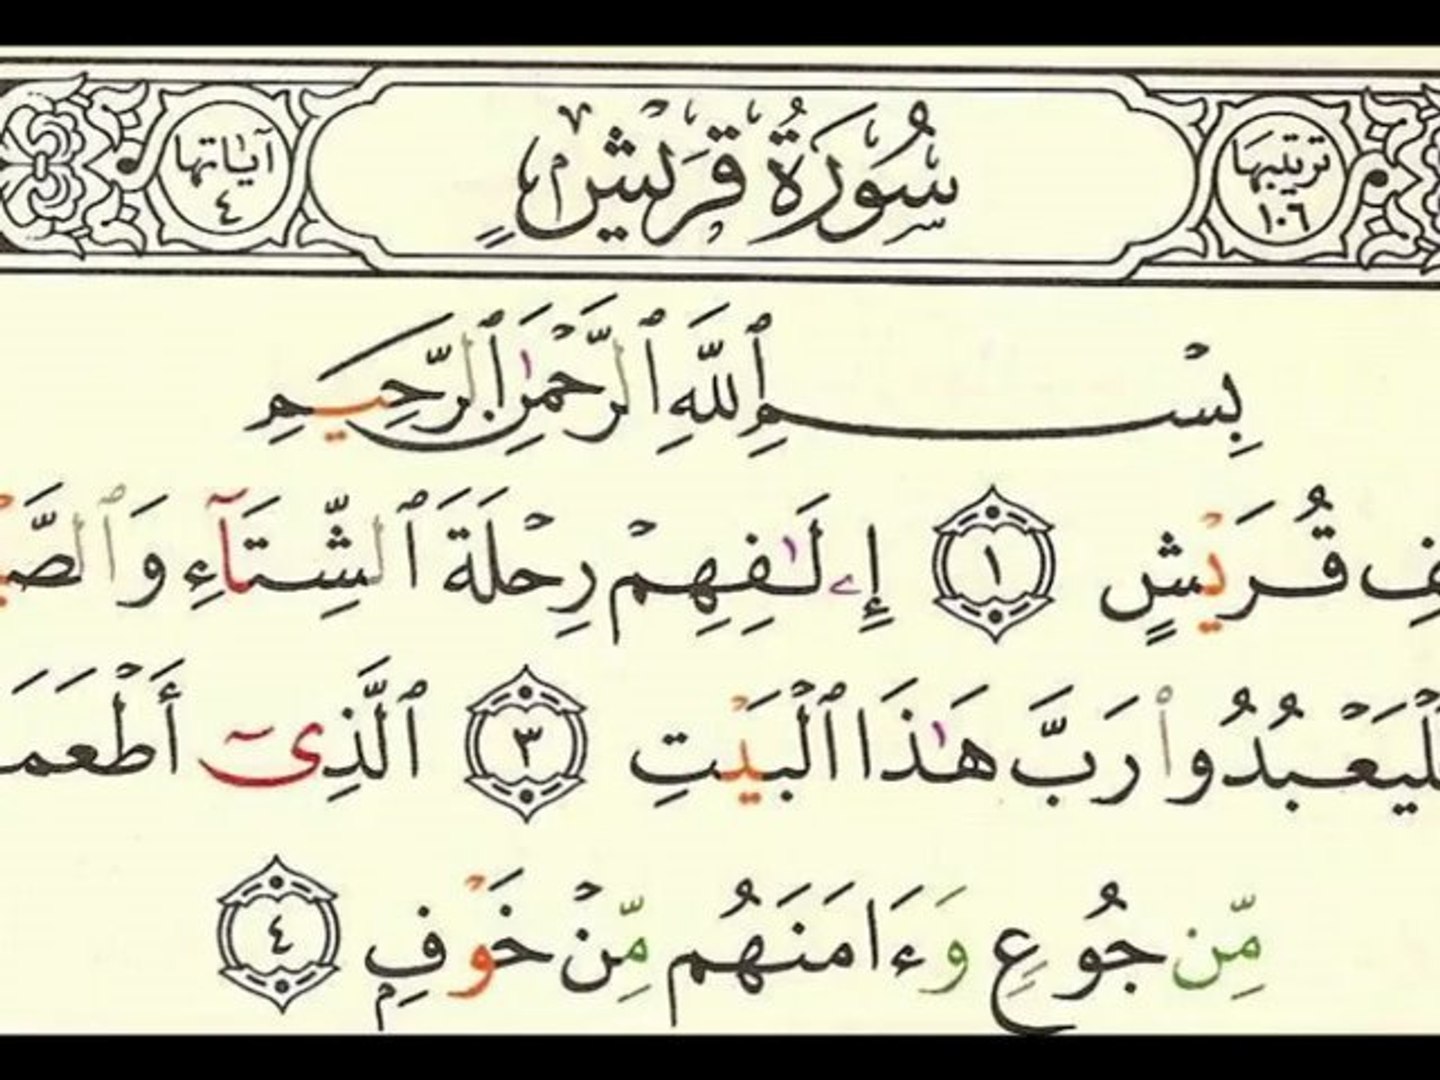 ترتيبها ١٠٦
سُورَةُ قُرَيْشٍ
آيَاتُهَا ٤
بِسْمِ ٱللَّهِ ٱلرَّحْمَٰنِ ٱلرَّحِيمِ
قُرَيْشٍ ١ إِۦلَٰفِهِمْ رِحْلَةَ ٱلشِّتَآءِ
رَبَّ هَٰذَا ٱلْبَيْتِ ٣ ٱلَّذِىٓ
مِّن جُوعٍ وَءَامَنَهُم مِّنْ خَوْفٍۭ ٤